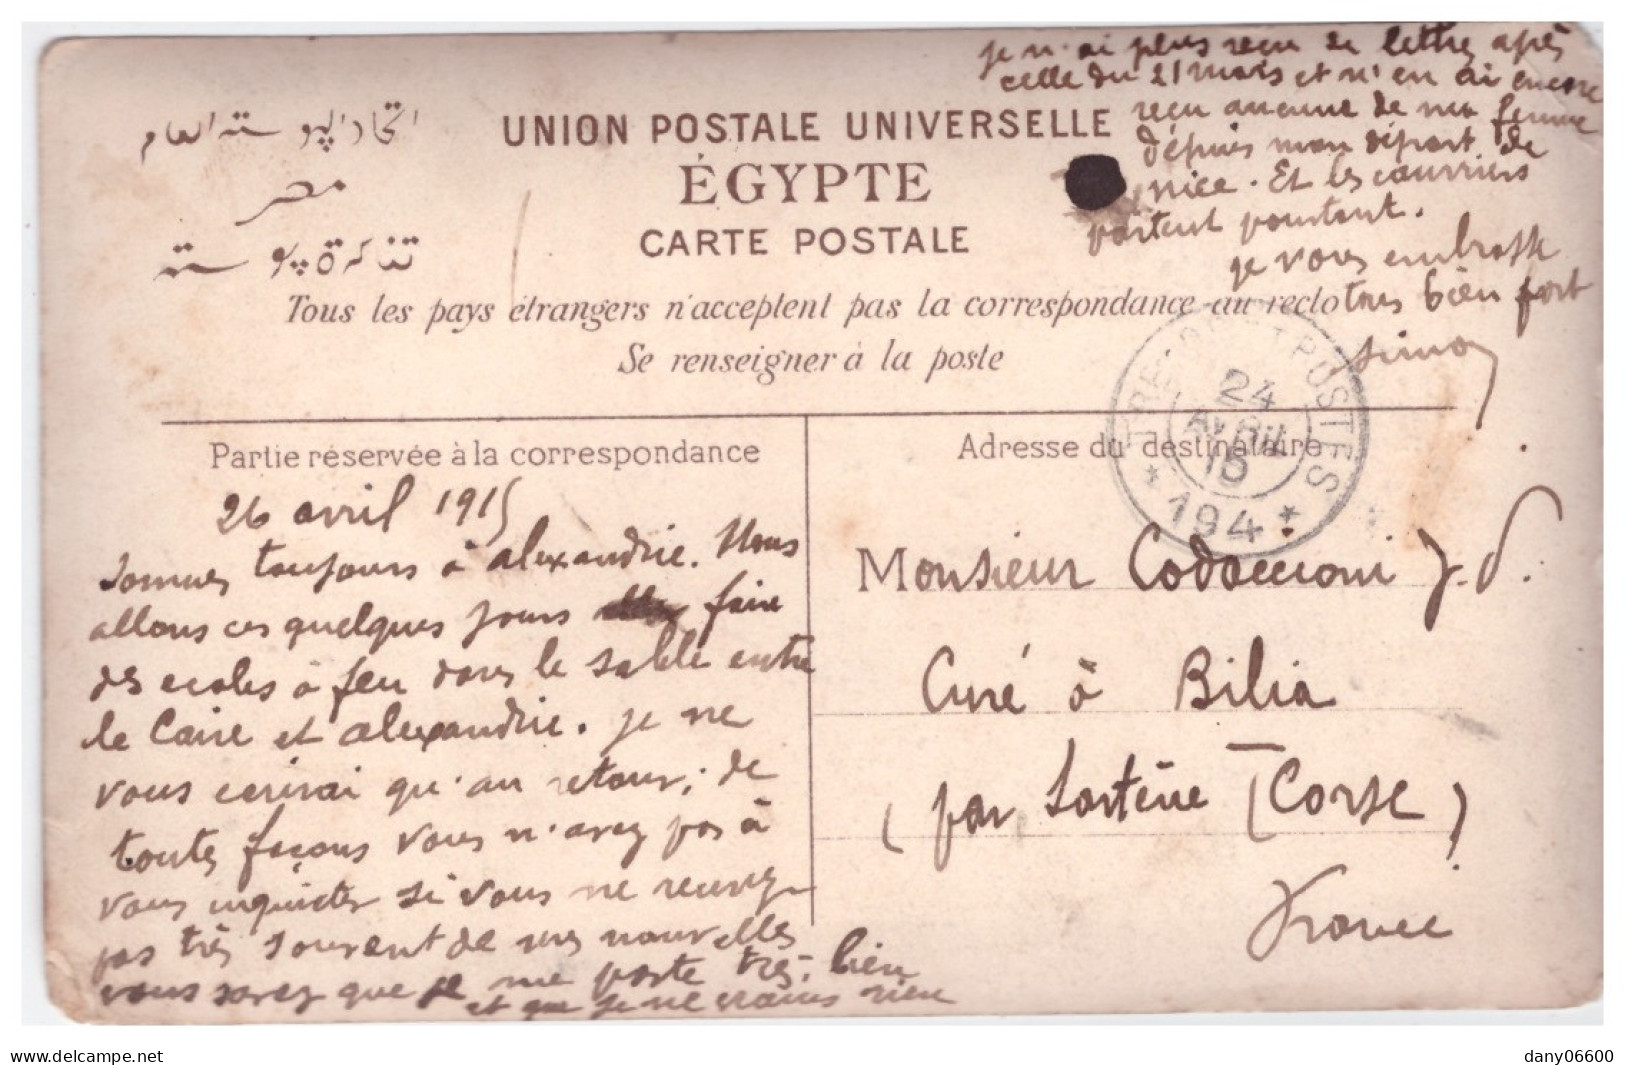 اتحاد البوسته العام
مصر
تذكرة بوسته
UNION POSTALE UNIVERSELLE
ÉGYPTE
CARTE POSTALE
Tous les pays étrangers n'acceptent pas la correspondance au recto
Se renseigner à la poste
Partie réservée à la correspondance
26 avril 1915
Sommes toujours à alexandrie. Nous
allons ces quelques jours faire
des ecoles à feu dans le sable entre
le Caire et alexandrie. je ne
vous ecrirai qu'au retour; de
toutes façons vous n'avez pas à
vous inquieter si vous ne recevez
pas très souvent de mes nouvelles
vous savez que je me porte très bien
et que je ne crains rien
je n'ai plus reçu de lettres après
celle du 21 mars et n'en ai encore
reçu aucune de ma femme
depuis mon départ de
nice. Et les courriers
partent pourtant.
je vous embrasse
tres bien fort
Simon
TRESOR ET POSTES
24
AVRIL
15
* 194 *
Adresse du destinataire
Monsieur Codaccioni J. P.
Curé à Bilia
(par Sartène (Corse)
France
delcampe.net
dany06600